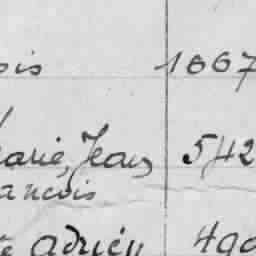 ois 1667
Marie, Jean 542
ancois
te Adrien 490